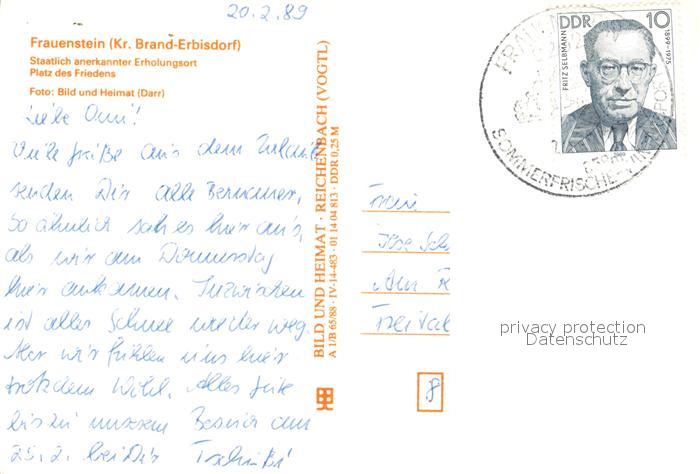 20.2.89
Frauenstein (Kr. Brand-Erbisdorf)
Staatlich anerkannter Erholungsort
Platz des Friedens
Foto: Bild und Heimat (Darr)
Liebe Omi!
Viele Grüße aus dem
senden Dir alle
So ähnlich sah es hier aus,
als wir am Donnerstag
hier ankamen. Inzwischen
ist aller Schnee wieder weg.
Aber wir fühlen uns hier
trotzdem wohl. Alles Gute
bis zu unserem Besuch am
25.2. bei Dir Tschüß!
BILD UND HEIMAT · REICHENBACH (VOGTL)
A 1/B 65/88 · IV-14-483 · 01 14 04 813 · DDR 0,25 M
Frau
Ilse Sch
Am R
Freital
8
DDR 10
FRITZ SELBMANN
1899-1975
SOMMERFRISCHE
privacy protection
Datenschutz